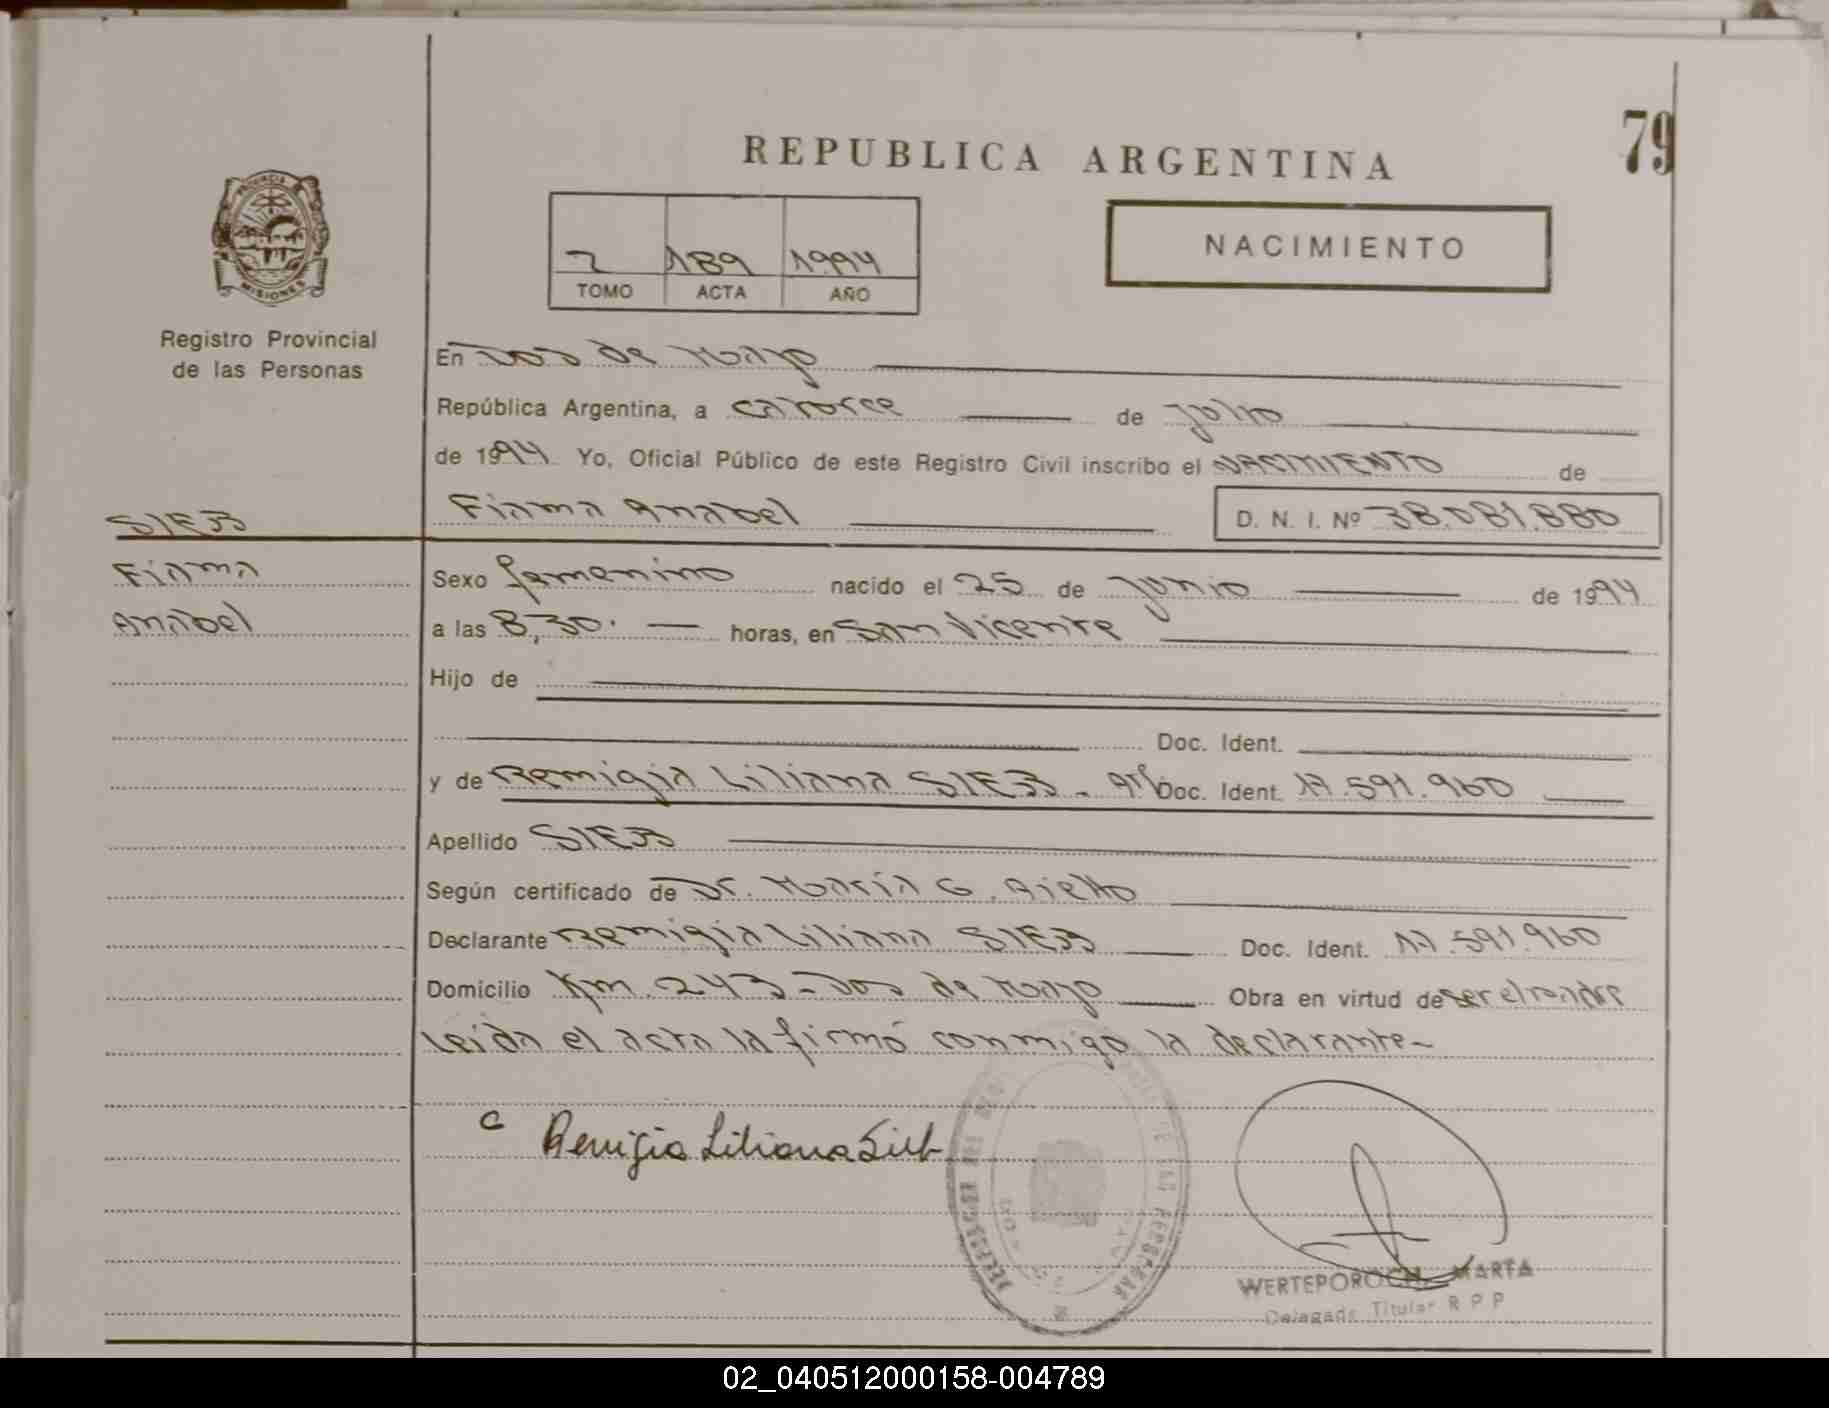 79
REPUBLICA ARGENTINA
PROVINCIA
MISIONES
Registro Provincial
de las Personas
2 189 1994
TOMO ACTA AÑO
NACIMIENTO
En Dos de Mayo
República Argentina, a catorce de Julio
de 1994 Yo, Oficial Público de este Registro Civil inscribo el NACIMIENTO de
SIEB
Fiama Anabel D. N. I. Nº 38.081.880
Fiama
Anabel
Sexo femenino nacido el 25 de Junio de 1994
a las 8,30. horas, en San Vicente
Hijo de
Doc. Ident.
y de Remigia Liliana SIEB - Doc. Ident. 17.591.960
Apellido SIEB
Según certificado de Dr. María G. Aiello
Declarante Remigia Liliana SIEB Doc. Ident. 17.591.960
Domicilio Km. 243 - Dos de Mayo Obra en virtud de ser el madre
Leída el acta la firmó conmigo la declarante-
Remigia Liliana Sieb
DE LAS PERSONAS
WERTEPOROCH, MARTA
Delegada Titular R P P
02_040512000158-004789